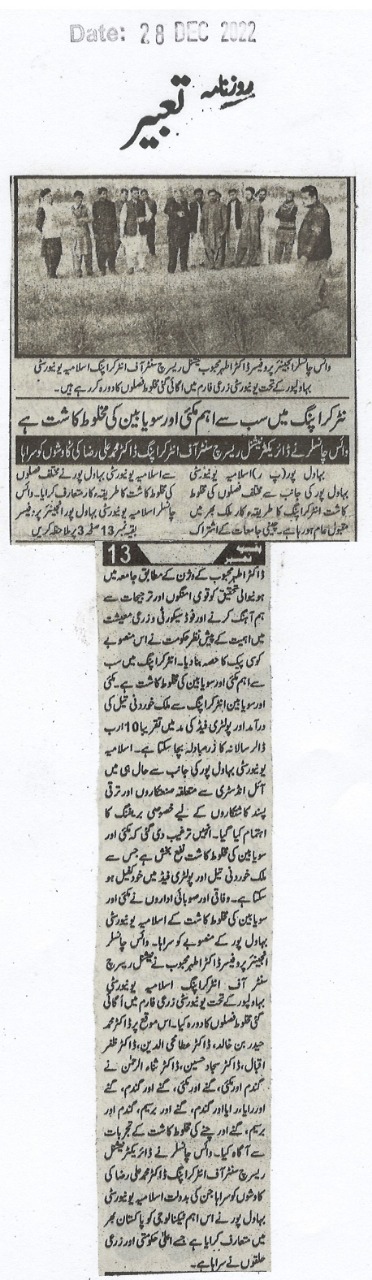 Date: 28 DEC 2022
روزنامہ
تعبیر
وائس چانسلر انجینئر پروفیسر ڈاکٹر اطہر محبوب نیشنل ریسرچ سنٹر آف انٹر کراپنگ اسلامیہ یونیورسٹی
بہاولپور کے تحت یونیورسٹی زرعی فارم میں اگائی گئی مخلوط فصلوں کا دورہ کر رہے ہیں۔
نٹر کراپنگ میں سب سے اہم مکئی اور سویا بین کی مخلوط کاشت ہے
وائس چانسلر نے ڈائریکٹر نیشنل ریسرچ سنٹر آف انٹر کراپنگ ڈاکٹر محمد علی رضا کی کاوشوں کو سراہا
بہاول پور (پ ر) اسلامیہ یونیورسٹی
بہاول پور کی جانب سے مختلف فصلوں کی مخلوط
کاشت انٹر کراپنگ کا طریقہ کار ملک بھر میں
مقبول عام ہو رہا ہے۔ چینی جامعات کے اشتراک
سے اسلامیہ یونیورسٹی بہاول پور نے مختلف فصلوں
کی مخلوط کاشت کا طریقہ کار متعارف کرایا۔ وائس
چانسلر اسلامیہ یونیورسٹی بہاول پور انجینئر پروفیسر
بقیہ نمبر 13 صفحہ 3 پر ملاحظہ کریں
بقیہ نمبر 13
ڈاکٹر اطہر محبوب کے وژن کے مطابق جامعہ میں
ہونیوالی تحقیق کو قومی امنگوں اور ترجیحات سے
ہم آہنگ کرنے اور فوڈ سیکورٹی و زرعی معیشت
میں اہمیت کے پیش نظر حکومت نے اس منصوبے
کو سی پیک کا حصہ بنا دیا۔ انٹر کراپنگ میں سب
سے اہم مکئی اور سویا بین کی مخلوط کاشت ہے۔ مکئی
اور سویا بین انٹر کراپنگ سے ملک خوردنی تیل کی
درآمد اور پولٹری فیڈ کی مد میں تقریبا 10 ارب
ڈالر سالانہ کا زرمبادلہ بچا سکتا ہے۔ اسلامیہ
یونیورسٹی بہاول پور کی جانب سے حال ہی میں
آئل انڈسٹری سے متعلقہ صنعتکاروں اور ترقی
پسند کاشتکاروں کے لیے خصوصی بریفنگ کا
اہتمام کیا گیا۔ انہیں ترغیب دی گئی کہ مکئی اور
سویا بین کی مخلوط کاشت نفع بخش ہے جس سے
ملک خوردنی تیل اور پولٹری فیڈ میں خود کفیل ہو
سکتا ہے۔ وفاقی اور صوبائی اداروں نے مکئی اور
سویا بین کی مخلوط کاشت کے اسلامیہ یونیورسٹی
بہاول پور کے منصوبے کو سراہا۔ وائس چانسلر
انجینئر پروفیسر ڈاکٹر اطہر محبوب نے نیشنل ریسرچ
سنٹر آف انٹر کراپنگ اسلامیہ یونیورسٹی
بہاولپور کے تحت یونیورسٹی زرعی فارم میں اگائی
گئی مخلوط فصلوں کا دورہ کیا۔ اس موقع پر ڈاکٹر محمد
حیدر بن خالد، ڈاکٹر عطا محی الدین، ڈاکٹر ظفر
اقبال، ڈاکٹر سجاد حسین، ڈاکٹر ثناء الرحمن نے
گندم اور مکئی، گنے اور مکئی، گنے اور گندم، گنے
اور رایا، رایا اور گندم، گنے اور برسیم، گندم اور
برسیم، گنے اور چنے کی مخلوط کاشت کے تجربات
سے آگاہ کیا۔ وائس چانسلر نے ڈائریکٹر نیشنل
ریسرچ سنٹر آف انٹر کراپنگ ڈاکٹر محمد علی رضا کی
کاوشوں کو سراہا جن کی بدولت اسلامیہ یونیورسٹی
بہاول پور نے اس اہم ٹیکنالوجی کو پاکستان بھر
میں متعارف کرایا ہے جسے اعلیٰ حکومتی اور زرعی
حلقوں نے سراہا ہے۔